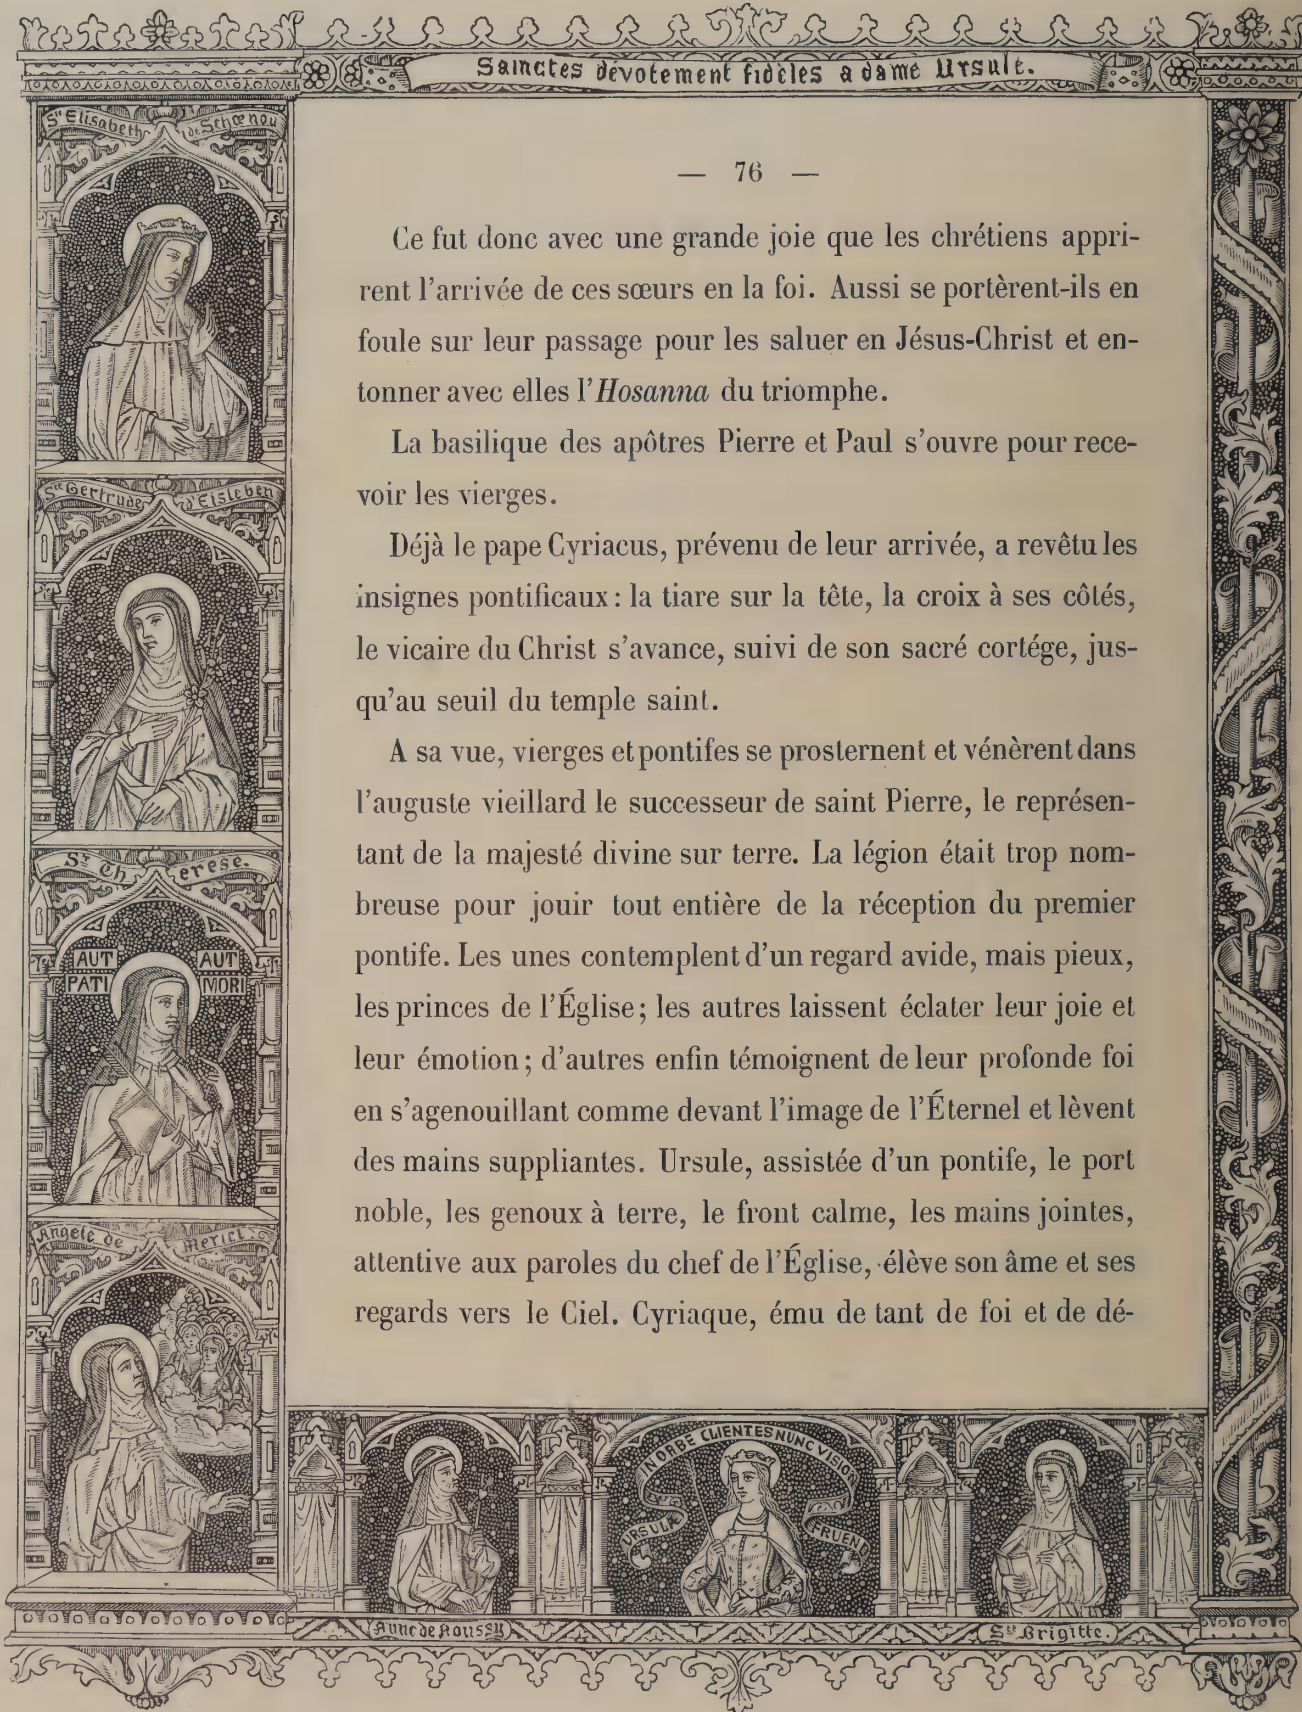 Sainctes devotement fidèles a dame Ursule.
Ste Elisabeth de Schœnau
Ste Gertrude d'Eisleben
Ste Therese.
AUT PATI
AUT MORI
Angele de Merici.
— 76 —
Ce fut donc avec une grande joie que les chrétiens appri-
rent l'arrivée de ces sœurs en la foi. Aussi se portèrent-ils en
foule sur leur passage pour les saluer en Jésus-Christ et en-
tonner avec elles l'Hosanna du triomphe.
La basilique des apôtres Pierre et Paul s'ouvre pour rece-
voir les vierges.
Déjà le pape Cyriacus, prévenu de leur arrivée, a revêtu les
insignes pontificaux : la tiare sur la tête, la croix à ses côtés,
le vicaire du Christ s'avance, suivi de son sacré cortége, jus-
qu'au seuil du temple saint.
A sa vue, vierges et pontifes se prosternent et vénèrent dans
l'auguste vieillard le successeur de saint Pierre, le représen-
tant de la majesté divine sur terre. La légion était trop nom-
breuse pour jouir tout entière de la réception du premier
pontife. Les unes contemplent d'un regard avide, mais pieux,
les princes de l'Église ; les autres laissent éclater leur joie et
leur émotion ; d'autres enfin témoignent de leur profonde foi
en s'agenouillant comme devant l'image de l'Éternel et lèvent
des mains suppliantes. Ursule, assistée d'un pontife, le port
noble, les genoux à terre, le front calme, les mains jointes,
attentive aux paroles du chef de l'Église, élève son âme et ses
regards vers le Ciel. Cyriaque, ému de tant de foi et de dé-
URSULÆ IN ORBE CLIENTES NUNC VISIONE FRUENT
Anne de Roussy
Ste Brigitte.